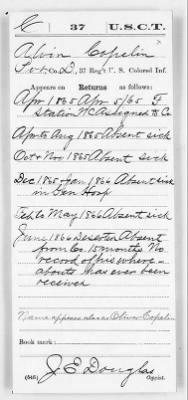 C 37 U.S.C.T.
Alvin Copelin
Co. D, 37 Reg't U. S. Colored Inf.
Appears on Returns as follows:
Apr 1865 Apr 5/65 F
Station N.C. Assigned to Co
Apr to Aug 1865 Absent sick
Oct & Nov 1865 Absent sick
Dec 1865 Jan 1866 Absent sick
in Gen Hosp
Feb to May 1866 Absent sick
June 1866 Deserter Absent
from Co. 15 months No
record of his where-
abouts has ever been
received
Name appears also as Oliver Copelin
Book mark:
J. E. Douglas
(646) Copyist.